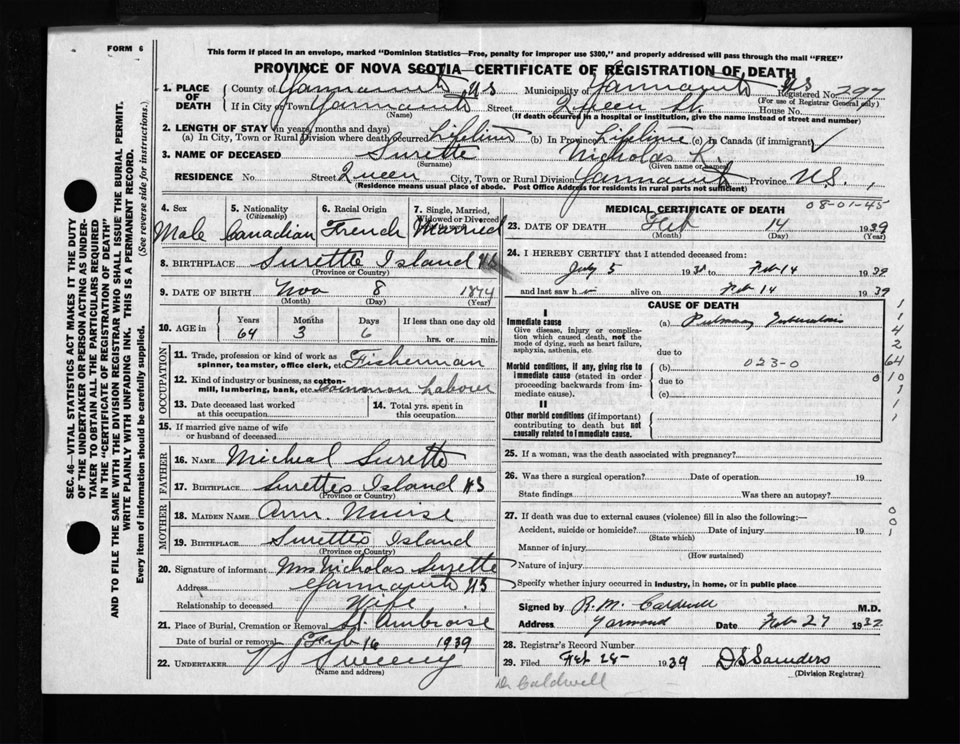 FORM 6
This form if placed in an envelope, marked "Dominion Statistics—Free, penalty for improper use $300," and properly addressed will pass through the mail "FREE"
PROVINCE OF NOVA SCOTIA—CERTIFICATE OF REGISTRATION OF DEATH
1. PLACE OF DEATH
County of Yarmouth NS Municipality of Yarmouth NS Registered No. 297
(For use of Registrar General only)
If in City or Town Yarmouth Street Queen St. House No.
(Name) (If death occurred in a hospital or institution, give the name instead of street and number)
2. LENGTH OF STAY (in years, months and days)
(a) In City, Town or Rural Division where death occurred Lifetime (b) In Province Lifetime (c) In Canada (if immigrant)
3. NAME OF DECEASED Surette Nicholas R.
(Surname) (Given name or names)
RESIDENCE No. Street Queen City, Town or Rural Division Yarmouth Province NS.
(Residence means usual place of abode. Post Office Address for residents in rural parts not sufficient)
4. Sex 5. Nationality (Citizenship) 6. Racial Origin 7. Single, Married, Widowed or Divorced
Male Canadian French Married
8. BIRTHPLACE Surette Island NS
(Province or Country)
9. DATE OF BIRTH Nov 8 1874
(Month) (Day) (Year)
10. AGE in Years Months Days If less than one day old
64 3 6 hrs. or min.
OCCUPATION
11. Trade, profession or kind of work as spinner, teamster, office clerk, etc. Fisherman
12. Kind of industry or business, as cotton-mill, lumbering, bank, etc. Common Labour
13. Date deceased last worked at this occupation. 14. Total yrs. spent in this occupation.
15. If married give name of wife or husband of deceased
FATHER
16. NAME Micheal Surette
17. BIRTHPLACE Surettes Island NS
(Province or Country)
MOTHER
18. MAIDEN NAME Ann. Muise
19. BIRTHPLACE Surettes Island
(Province or Country)
20. Signature of informant Mrs Nicholas Surette
Address Yarmouth NS
Relationship to deceased Wife
21. Place of Burial, Cremation or Removal St. Ambroise
Date of burial or removal Feb 16 1939
22. UNDERTAKER Sweeny
(Name and address)
08-01-45
MEDICAL CERTIFICATE OF DEATH
23. DATE OF DEATH Feb 14 1939
(Month) (Day) (Year)
24. I HEREBY CERTIFY that I attended deceased from:
July 5 193 to Feb 14 1939
and last saw h alive on Feb 14 1939
CAUSE OF DEATH
I
Immediate cause (a) Pulmonary Tuberculosis
Give disease, injury or complication which caused death, not the mode of dying, such as heart failure, asphyxia, asthenia, etc.
due to
Morbid conditions, if any, giving rise to immediate cause (stated in order proceeding backwards from immediate cause).
(b) 023-0
due to
(c)
II
Other morbid conditions (if important) contributing to death but not causally related to immediate cause.
1
1
4
2
64
0 10
1
1
25. If a woman, was the death associated with pregnancy?
26. Was there a surgical operation? Date of operation 19
State findings Was there an autopsy?
27. If death was due to external causes (violence) fill in also the following:—
Accident, suicide or homicide? Date of injury 19
(State which)
Manner of injury
(How sustained)
Nature of injury
Specify whether injury occurred in industry, in home, or in public place
0
0
1
Signed by R. M. Caldwell M.D.
Address Yarmouth Date Feb 27 1939
28. Registrar's Record Number
29. Filed Feb 28 1939 D S Saunders
(Division Registrar)
Dr Caldwell
SEC. 46—VITAL STATISTICS ACT MAKES IT THE DUTY OF THE UNDERTAKER OR PERSON ACTING AS UNDERTAKER TO OBTAIN ALL THE PARTICULARS REQUIRED IN THE "CERTIFICATE OF REGISTRATION OF DEATH"
AND TO FILE THE SAME WITH THE DIVISION REGISTRAR WHO SHALL ISSUE THE BURIAL PERMIT.
WRITE PLAINLY WITH UNFADING INK. THIS IS A PERMANENT RECORD.
Every item of information should be carefully supplied. (See reverse side for instructions.)